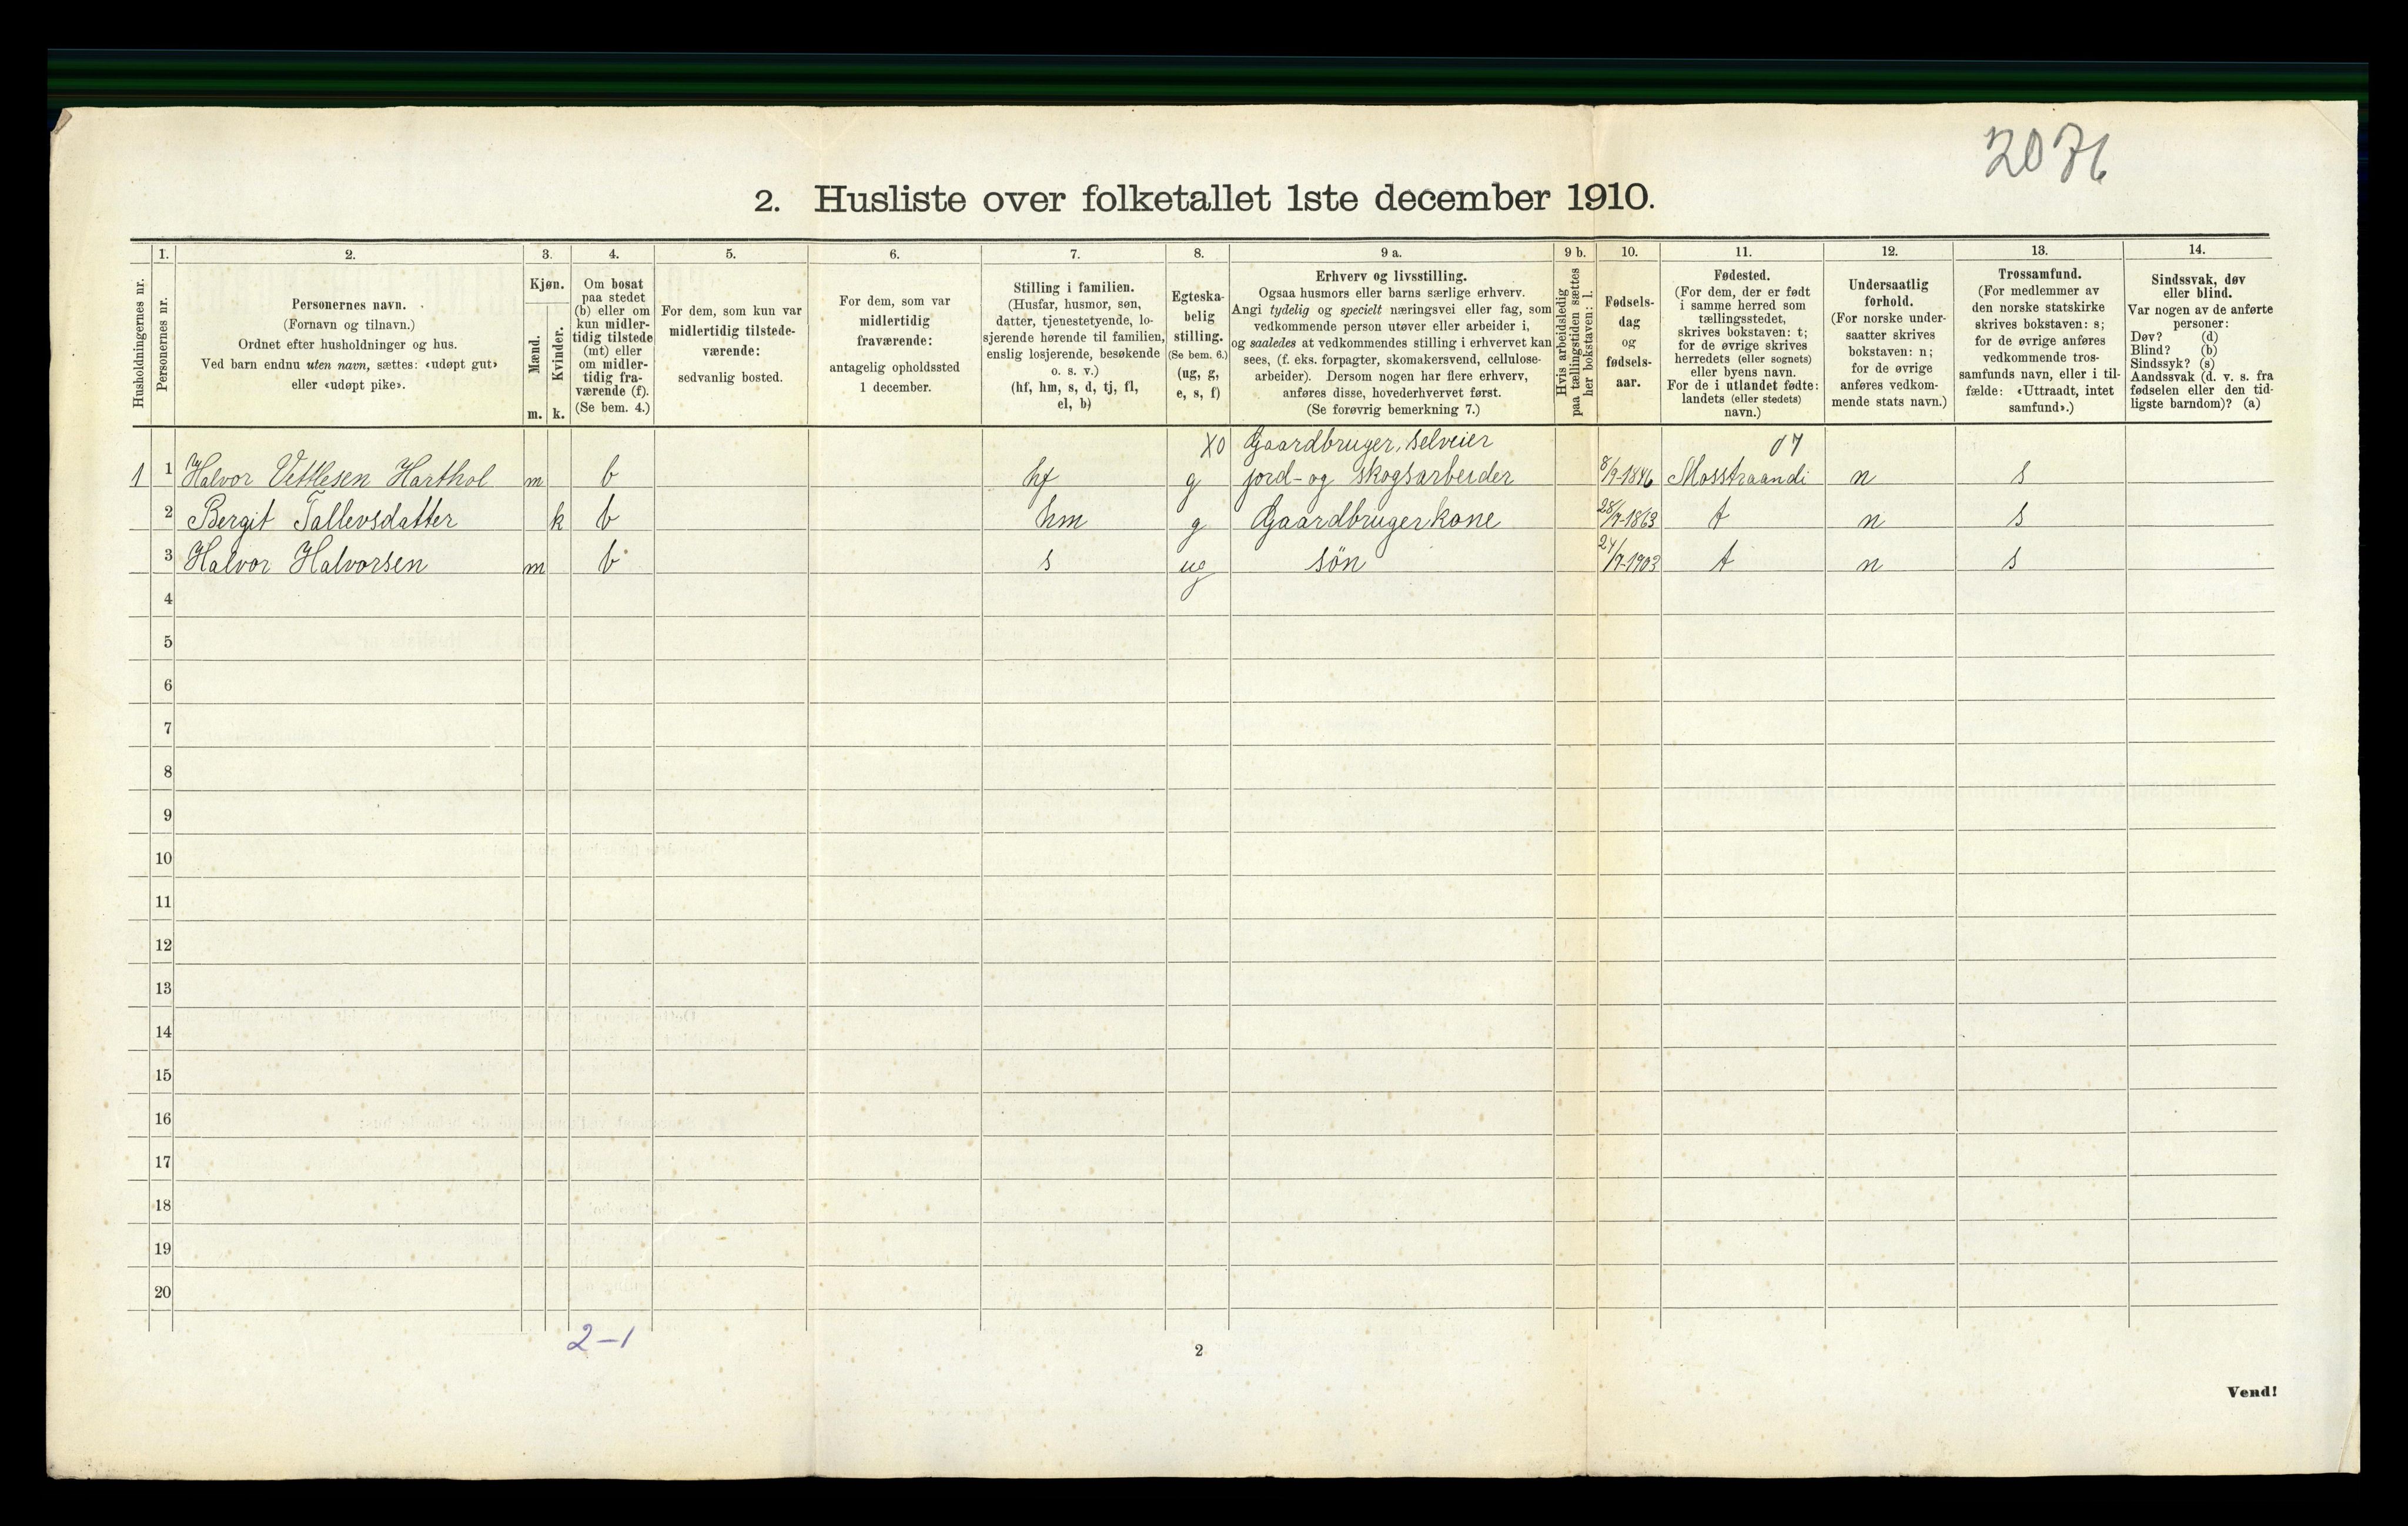 2. Husliste over folketallet 1ste december 1910.
Husholdningernes nr.
1.
Personernes nr.
2.
Personernes navn.
(Fornavn og tilnavn.)
Ordnet efter husholdninger og hus.
Ved barn endnu uten navn, sættes: «udøpt gut»
eller «udøpt pike».
3.
Kjøn.
Mænd.
Kvinder.
m. k.
4.
Om bosat
paa stedet
(b) eller om
kun midler-
tidig tilstede
(mt) eller
om midler-
tidig fra-
værende (f).
(Se bem. 4.)
5.
For dem, som kun var
midlertidig tilstede-
værende:
sedvanlig bosted.
6.
For dem, som var
midlertidig
fraværende:
antagelig opholdssted
1 december.
7.
Stilling i familien.
(Husfar, husmor, søn,
datter, tjenestetyende, lo-
sjerende hørende til familien,
enslig losjerende, besøkende
o. s. v.)
(hf, hm, s, d, tj, fl,
el, b)
8.
Egteska-
belig
stilling.
(Se bem. 6.)
(ug, g,
e, s, f)
9 a.
Erhverv og livsstilling.
Ogsaa husmors eller barns særlige erhverv.
Angi tydelig og specielt næringsvei eller fag, som
vedkommende person utøver eller arbeider i,
og saaledes at vedkommendes stilling i erhvervet kan
sees, (f. eks. forpagter, skomakersvend, cellulose-
arbeider). Dersom nogen har flere erhverv,
anføres disse, hovederhvervet først.
(Se forøvrig bemerkning 7.)
9 b.
Hvis arbeidsledig
paa tællingstiden sættes
her bokstaven: l.
10.
Fødsels-
dag
og
fødsels-
aar.
11.
Fødested.
(For dem, der er født
i samme herred som
tællingsstedet,
skrives bokstaven: t;
for de øvrige skrives
herredets (eller sognets)
eller byens navn.
For de i utlandet fødte:
landets (eller stedets)
navn.)
12.
Undersaatlig
forhold.
(For norske under-
saatter skrives
bokstaven: n;
for de øvrige
anføres vedkom-
mende stats navn.)
13.
Trossamfund.
(For medlemmer av
den norske statskirke
skrives bokstaven: s;
for de øvrige anføres
vedkommende tros-
samfunds navn, eller i til-
fælde: «Uttraadt, intet
samfund».)
14.
Sindssvak, døv
eller blind.
Var nogen av de anførte
personer:
Døv? (d)
Blind? (b)
Sindssyk? (s)
Aandssvak (d. v. s. fra
fødselen eller den tid-
ligste barndom)? (a)
X0 Gaardbruger, selveier 07
1 1 Halvor Vettlesen Harthol m b hf g jord- og skogsarbeider 8/9-1846 Mosstraandi n s
2 Bergit Tallevsdatter k b hm g Gaardbrugerkone 28/7-1863 t n s
3 Halvor Halvorsen m b s ug sön 24/9-1903 t n s
4
5
6
7
8
9
10
11
12
13
14
15
16
17
18
19
20
2-1
2
Vend!